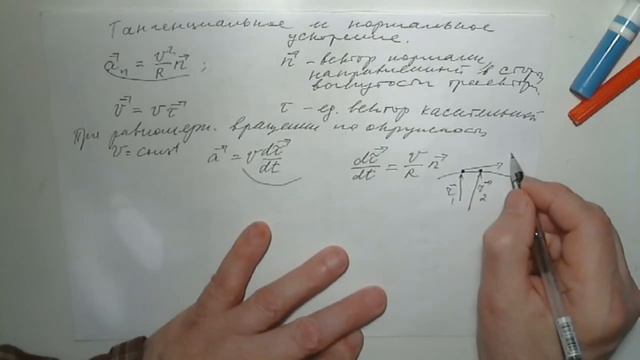 Тангенциальное и нормальное
ускорение.
a⃗ₙ = v²/R n⃗ ; n⃗ - вектор нормали,
направленный в стор.
вогнутости траектор.
v⃗ = vτ⃗ τ - ед. вектор касательной
При равномерн. вращении по окружности
v = const a⃗ = v dτ⃗/dt dτ⃗/dt = v/R n⃗
r⃗₁ r⃗₂